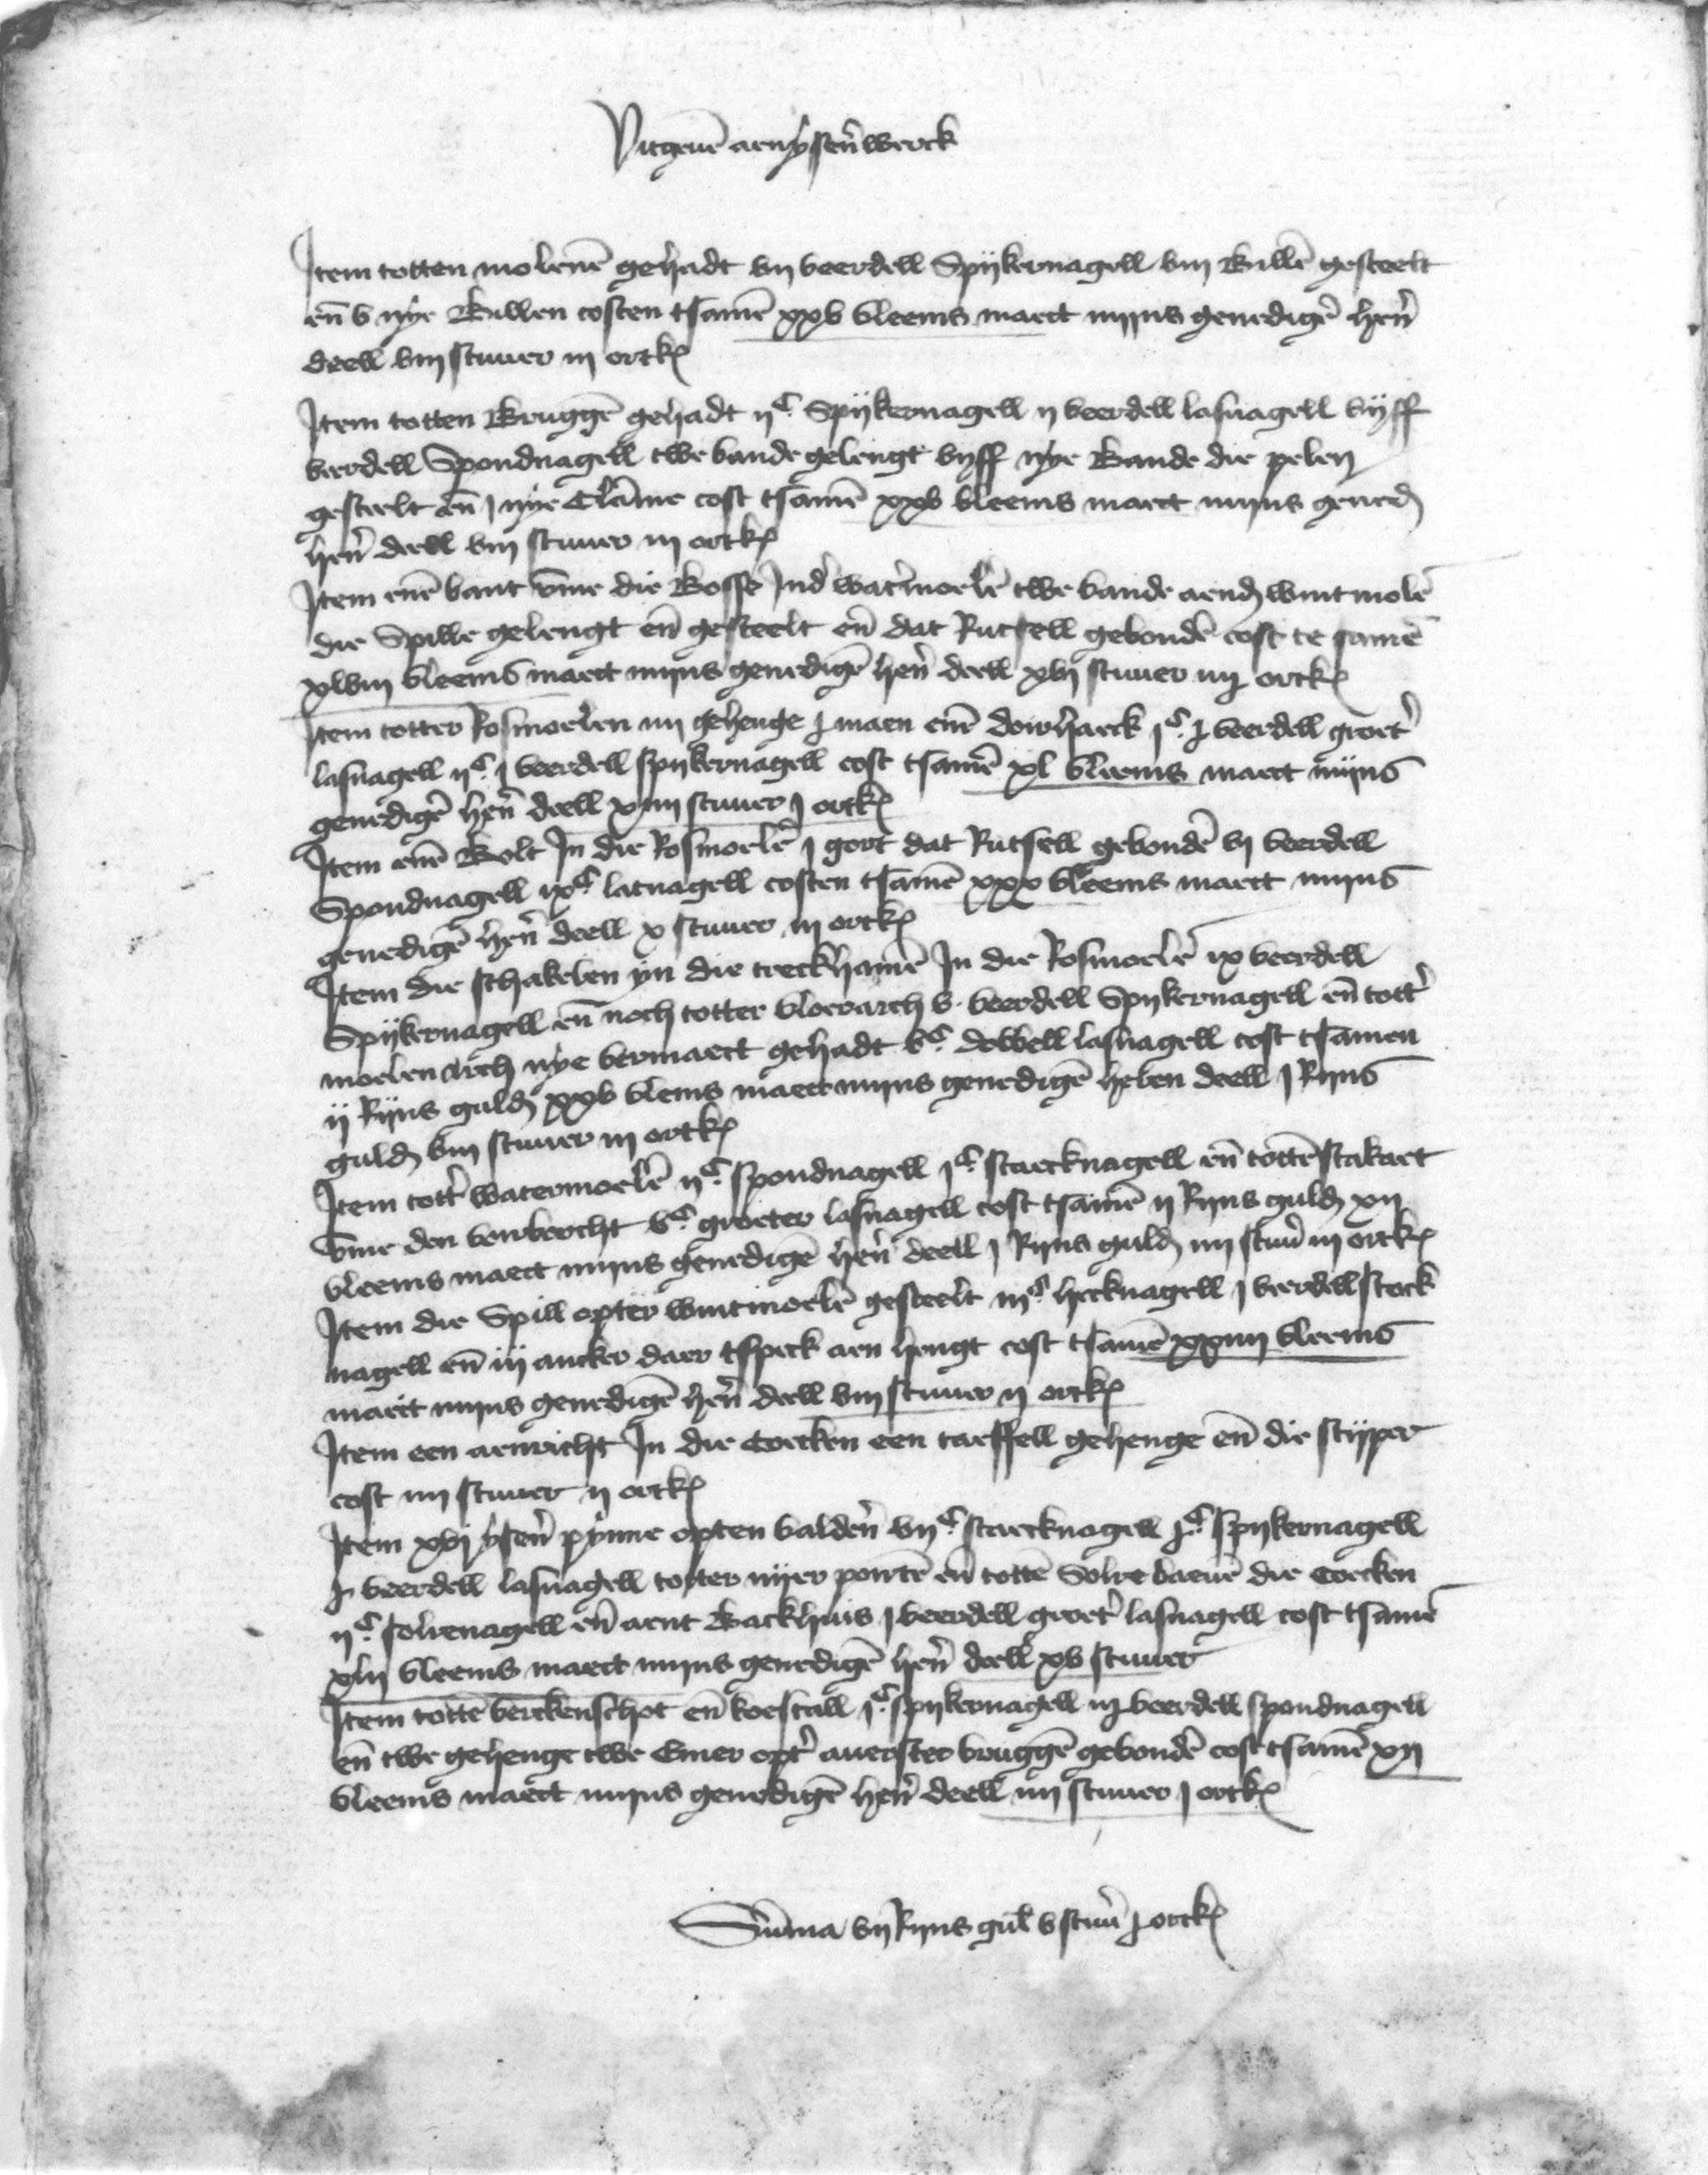 Vitgeuē aen ysen̄ werck
Item totten molenē gehadt vij veerdell Spijkernagell viij Billē gesteelt
en̄ v nye Billen costen tsamē xxv vleems maect mijns genedigē hen̄
deell viij stuuer iij ortkn̄
Item totten Bruggē gehadt ijᶜ Spijkernagell ij veerdell lasnagell vijff
veerdell Spondnagell twe bande gelengt vijff nye Bande die pelen
gesteelt en̄ j nye Clāme cost tsamē xxv vleems maect mijns gened
hen̄ deell viij stuuer iij ortkn̄
Item enē bant vm̄e die Bosse Ind wat'moelē twe bande aend wintmolē
die Spille gelengt en̄ gesteelt en̄ dat Rutsell gebondē cost te samē
xlviij vleems maect mijns genedigē hen̄ deell xvj stuuer iiij ortkn̄
Item totter Rosmoelen iiij gehenge maen enē doerhaeck jᶜ veerdell groet'
lasnagell ijᶜ j veerdell spijkernagell cost tsamē xl vleems maect mijns
genedigē hen̄ deell xiiij stuuer j ortkn̄
Item enē Bolt In die Rosmoelē j gort dat Rutsell gebondē vj veerdell
Spondnagell ixᶜ latnagell costen tsamē xxx vleems maect mijns
genedigē hen̄ deell x stuuer iij ortkn̄
Item die schakelen yn die treckhamē In die Rosmoelē ix veerdell
Spijkernagell en̄ noch totter vloerarch v veerdell Spijkernagell en̄ tott'
moelen arch nye vermaect gehadt vᶜ dobbell lasnagell cost tsamen
ij Rijns guld xxv vlems maect mijns genedigē heren deell j Rijns
guld viij stuuer iij ortkn̄
Item tott' watermoelē ijᶜ spondnagell jᶜ starcknagell en̄ tottē stakaet
vm̄e den vorborcht vᶜ groeter lasnagell cost tsamē ij Rijns guld xij
vleems maect mijns genedigē hen̄ deell j Rijns guld iiij stuu' iij ortkn̄
Item die Spill opter wintmoelē gesteelt iijᶜ hecknagell j veerdell stock
nagell en̄ iij ancker daer tspeck aen hengt cost tsamē xxiiij vleems
maect mijns genedigē hen̄ deell viij stuuer ij ortkn̄
Item een aenricht In die Coecken een taeffell gehenge en̄ die stijper
cost iiij stuuer ij ortkn̄
Item xvj ysen̄ pynne opten valden̄ vijᶜ starcknagell spijkernagell
veerdell lasnagell totter nyer portē en̄ tottē Solre bauē die Coecken
ijᶜ solrenagell en̄ aent Backhuis j veerdell groet' lasnagell cost tsamē
xlij vleems maect mijns genedigē hen̄ deell xv stuuer
Item tottē verckenschot en̄ koestall jᶜ spijkernagell veerdell spondnagell
en̄ twe gehenge twe Emer opt' auerster bruggē gebondē cost tsamē xij
vleems maect mijns genedigē hen̄ deell iiij stuuer j ortkn̄
Sum̄a vij Rijns gul v stuu' ortkn̄